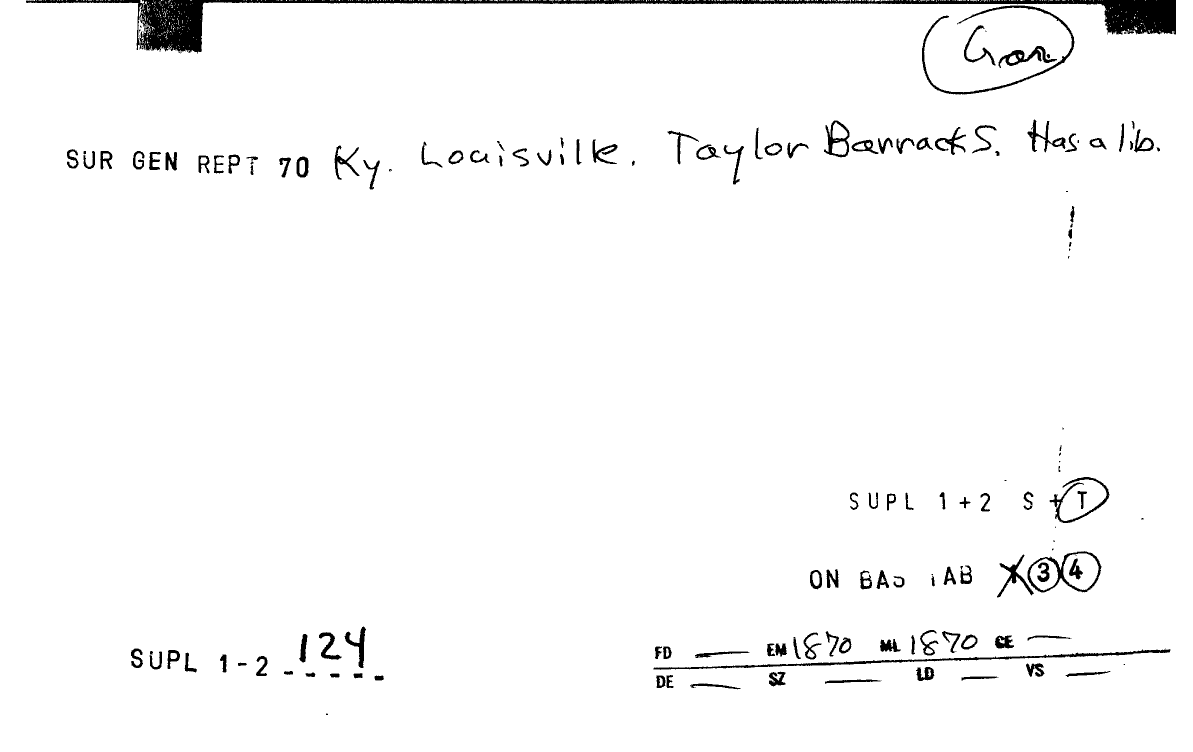 Gar.
SUR GEN REPT 70 Ky. Louisville. Taylor Barracks. Has a lib.
SUPL 1+2 S+T
ON BAS TAB 3 4
SUPL 1-2 124
FD — EM 1870 ML 1870 CE —
DE — SZ — LD — VS —